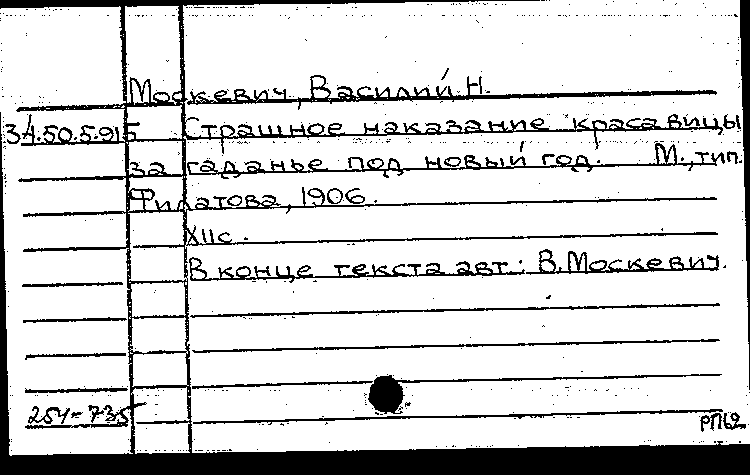 Москевич, Василий Н.
34.50.5.915 Страшное наказание красавицы
за гаданье под новый год. М., тип.
Филатова, 1906.
XIIс.
В конце текста авт: В. Москевич.
254-735
РП62